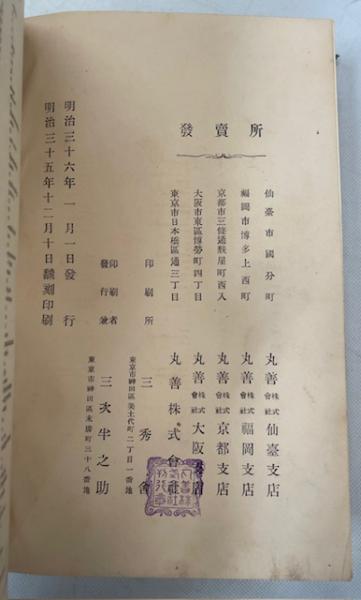 明治三十五年十二月十日飜刻印刷
明治三十六年一月一日發行
東京市神田區末廣町三十八番地
發行兼印刷者 三次半之助
東京市神田區美土代町二丁目一番地
印刷所 三秀舍
發賣所
東京市日本橋區通三丁目 丸善株式會社
大阪市東區博勞町四丁目 丸善株式會社大阪支店
京都市三條通麩屋町西入 丸善株式會社京都支店
福岡市博多上西町 丸善株式會社福岡支店
仙臺市國分町 丸善株式會社仙臺支店